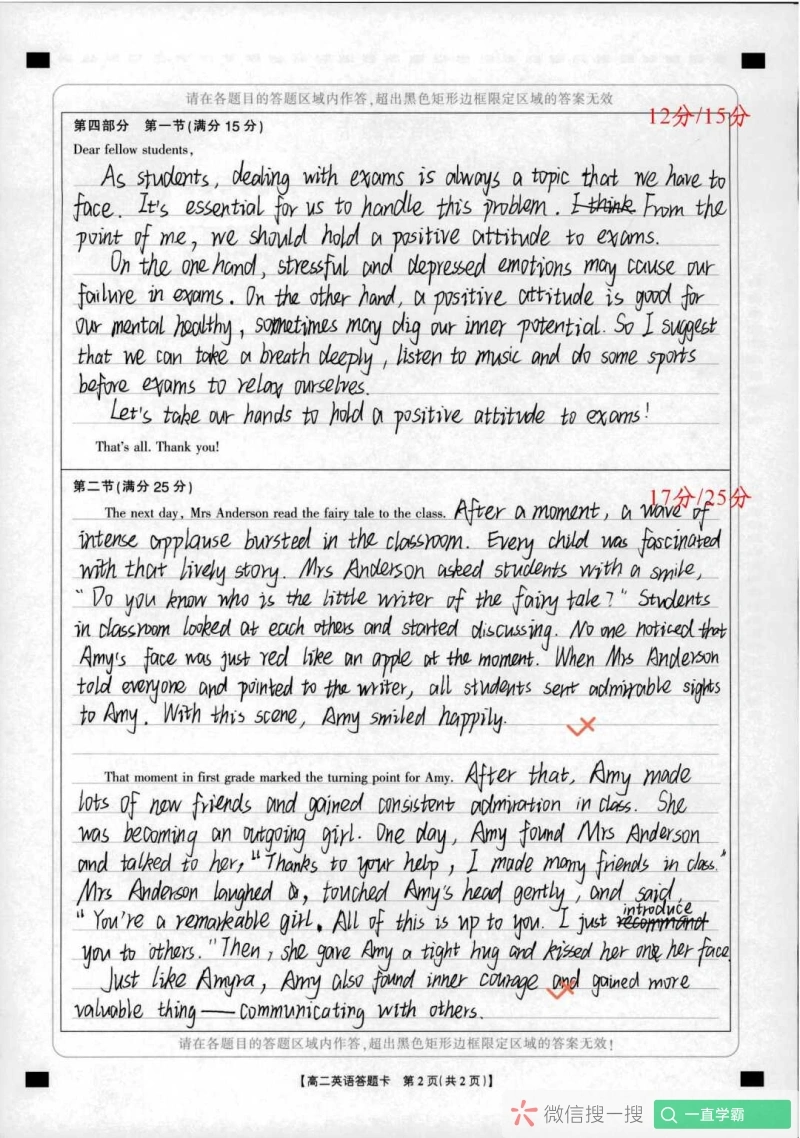 请在各题目的答题区域内作答,超出黑色矩形边框限定区域的答案无效
12分/15分
第四部分 第一节(满分15分)
Dear fellow students,
As students, dealing with exams is always a topic that we have to
face. It's essential for us to handle this problem. I think From the
point of me, we should hold a positive attitude to exams.
On the one hand, stressful and depressed emotions may cause our
failure in exams. On the other hand, a positive attitude is good for
our mental healthy, sometimes may dig our inner potential. So I suggest
that we can take a breath deeply, listen to music and do some sports
before exams to relax ourselves.
Let's take our hands to hold a positive attitude to exams!
That's all. Thank you!
第二节(满分25分)
17分/25分
The next day, Mrs Anderson read the fairy tale to the class. After a moment, a wave of
intense applause bursted in the classroom. Every child was fascinated
with that lively story. Mrs Anderson asked students with a smile,
"Do you know who is the little writer of the fairy tale?" Students
in classroom looked at each others and started discussing. No one noticed that
Amy's face was just red like an apple at the moment. When Mrs Anderson
told everyone and pointed to the writer, all students sent admirable sights
to Amy. With this scene, Amy smiled happily.
That moment in first grade marked the turning point for Amy. After that, Amy made
lots of new friends and gained consistent admiration in class. She
was becoming an outgoing girl. One day, Amy found Mrs Anderson
and talked to her, "Thanks to your help, I made many friends in class."
Mrs Anderson laughed, touched Amy's head gently, and said,
"You're a remarkable girl. All of this is up to you. I just recommand introduce
you to others." Then, she gave Amy a tight hug and kissed her one her face.
Just like Amyra, Amy also found inner courage and gained more
valuable thing——communicating with others.
请在各题目的答题区域内作答,超出黑色矩形边框限定区域的答案无效!
【高二英语答题卡 第2页(共2页)】
微信搜一搜 一直学霸